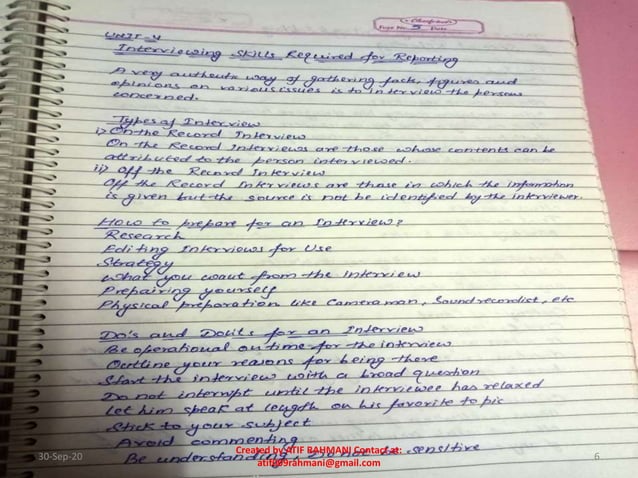 Page No. 5 Date
UNIT-4
Interviewing Skills Required for Reporting
A very authentic way of gathering facts, figures and
opinions on various issues is to interview the persons
concerned.
Types of Interview
i) On the Record Interview
On the Record Interviews are those whose contents can be
attributed to the person interviewed.
ii) Off the Record Interview
Off the Record Interviews are those in which the information
is given but the source is not be identified by the interviewer.
How to prepare for an Interview?
Research
Editing Interviews for Use
Strategy
What you want from the Interview
Prepairing yourself
Physical preparation like Cameraman, Soundrecordist, etc
Do's and Don'ts for an Interview
Be operational on time for the interview
Outline your reasons for being there
Start the interview with a broad question
Do not interrupt until the interviewee has relaxed
Let him speak at length on his favorite topic
Stick to your subject
Avoid commenting
Be understanding, sensitive
30-Sep-20
Created by ATIF RAHMANI Contact at:
6